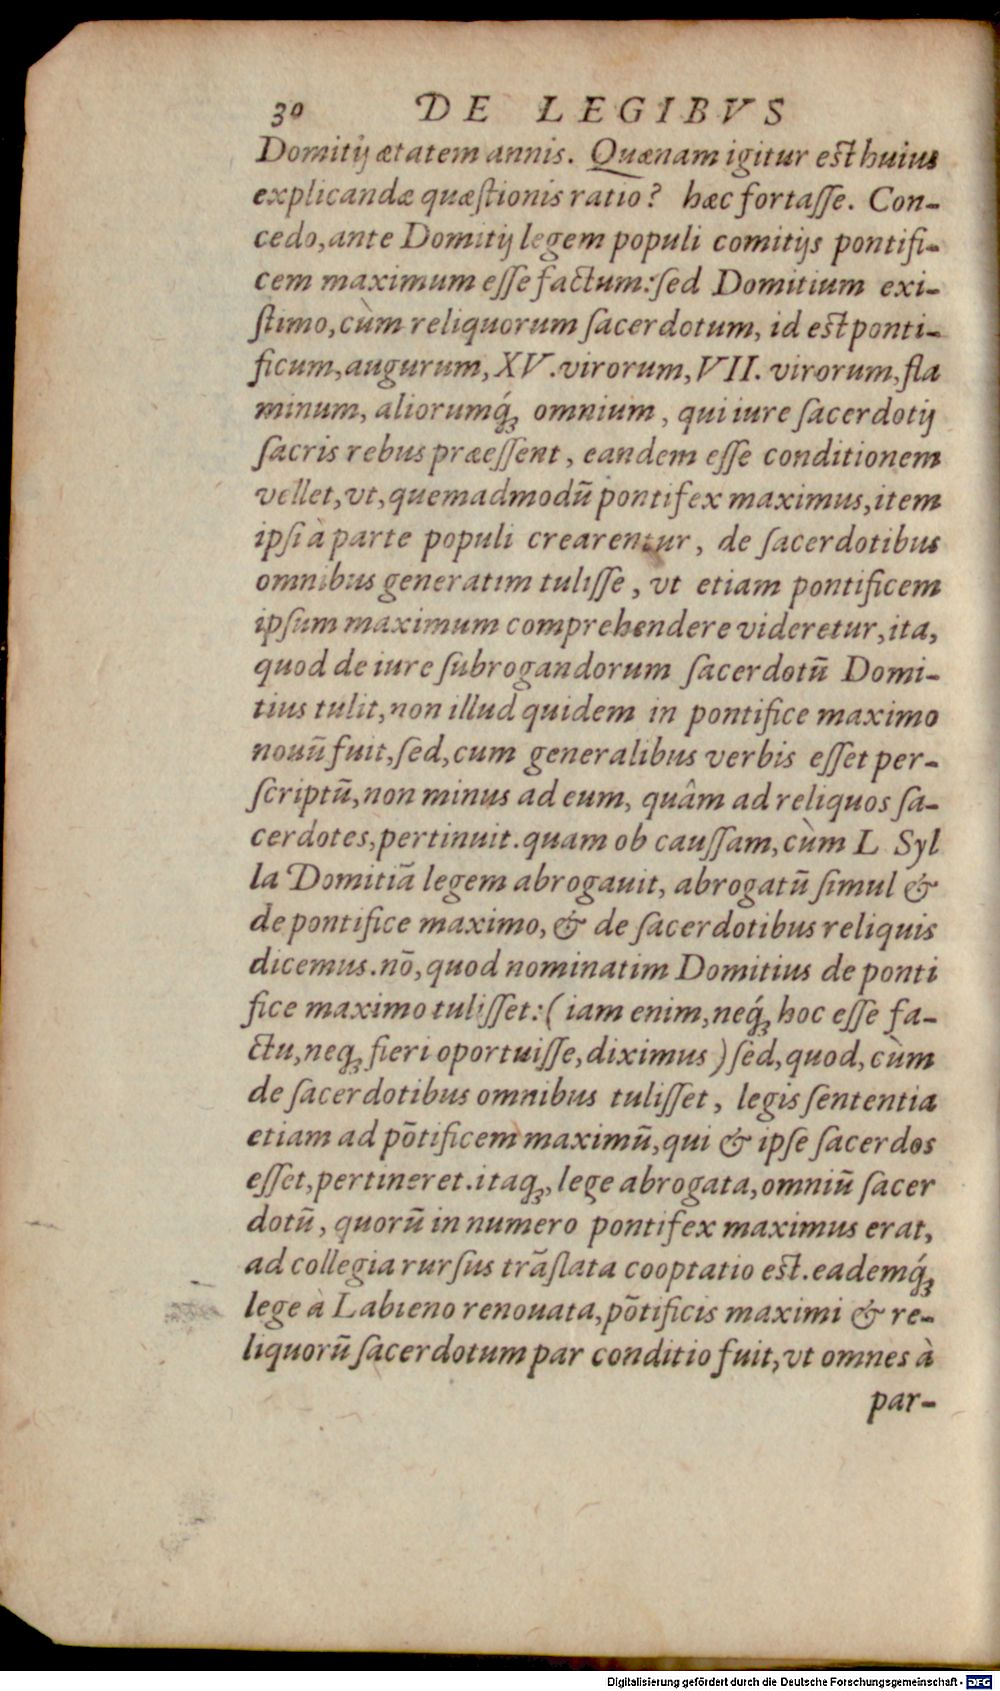 30 DE LEGIBVS
Domitij ætatem annis. Quænam igitur est huius
explicandæ quæſtionis ratio? hæc fortaſſe. Con-
cedo, ante Domitij legem populi comitijs pontifi-
cem maximum eſſe factum: ſed Domitium exi-
ſtimo, cùm reliquorum ſacerdotum, id est ponti-
ficum, augurum, XV. virorum, VII. virorum, fla
minum, aliorumq́ꝫ omnium, qui iure ſacerdotij
ſacris rebus præeſſent, eandem eſſe conditionem
vellet, vt, quemadmodū pontifex maximus, item
ipſi à parte populi crearentur, de ſacerdotibus
omnibus generatim tuliſſe, vt etiam pontificem
ipſum maximum comprehendere videretur, ita,
quod de iure ſubrogandorum ſacerdotū Domi-
tius tulit, non illud quidem in pontifice maximo
nouū fuit, ſed, cum generalibus verbis eſſet per-
ſcriptū, non minus ad eum, quâm ad reliquos ſa-
cerdotes, pertinuit. quam ob cauſſam, cùm L Syl
la Domitiā legem abrogauit, abrogatū ſimul &
de pontifice maximo, & de ſacerdotibus reliquis
dicemus. nō, quod nominatim Domitius de ponti
fice maximo tuliſſet: (iam enim, neq́ꝫ hoc eſſe fa-
ctu, neqꝫ fieri oportuiſſe, diximus) ſed, quod, cùm
de ſacerdotibus omnibus tuliſſet, legis ſententia
etiam ad pōtificem maximū, qui & ipſe ſacerdos
eſſet, pertineret. itaqꝫ, lege abrogata, omniū ſacer
dotū, quorū in numero pontifex maximus erat,
ad collegia rurſus trāſlata cooptatio est. eademq́ꝫ
lege à Labieno renouata, pōtificis maximi & re-
liquorū ſacerdotum par conditio fuit, vt omnes à
par-
Digitalisierung gefördert durch die Deutsche Forschungsgemeinschaft - DFG